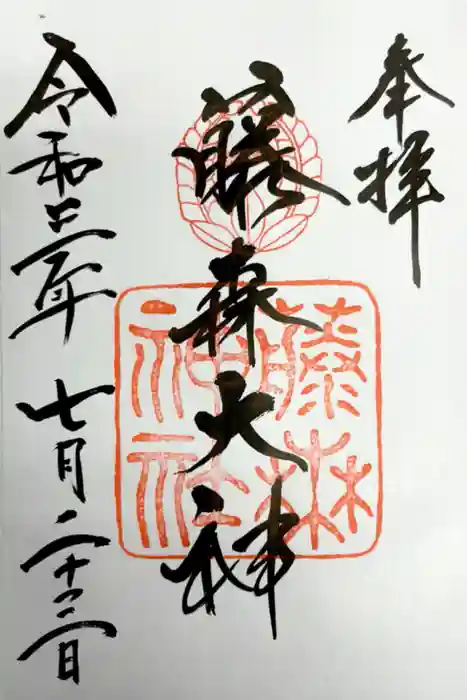 奉拝
藤森大神
藤森神社
令和三年七月二十三日